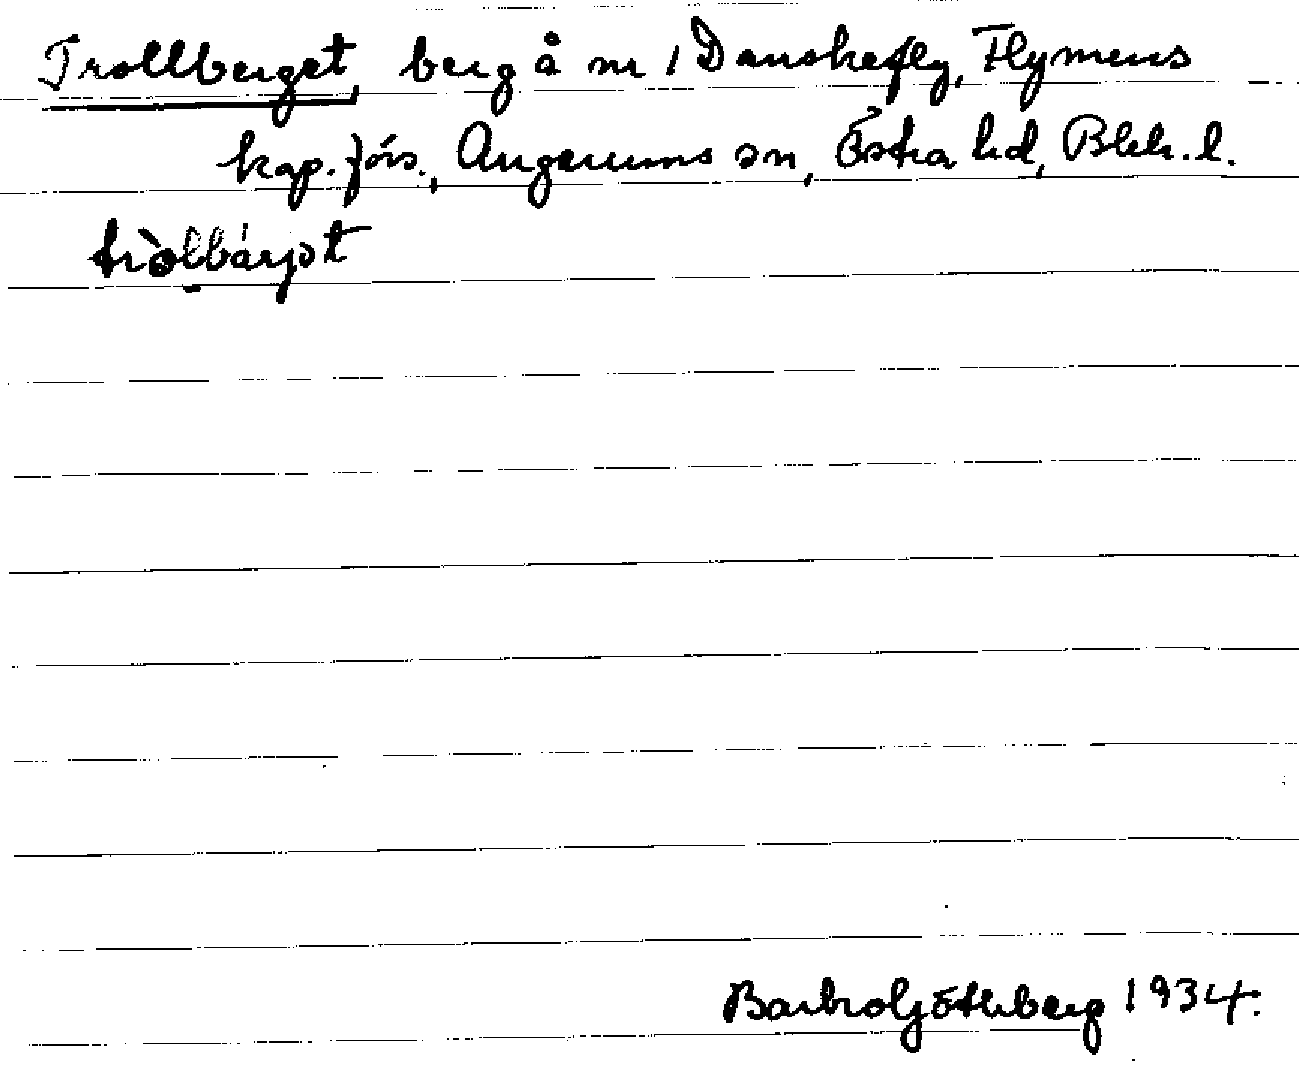 Trollberget, berg å nr 1 Danskefly, Flymens
kap.förs., Augerums sn, Östra hd, Blek. l.
tròlbárjət
Barbro Götheberg 1934.